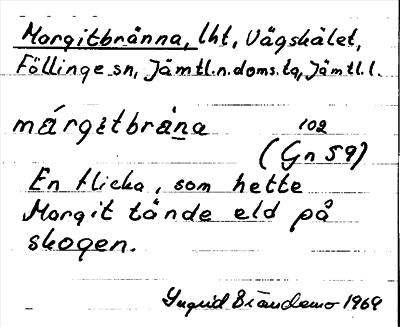 Margitbränna, lht, Vågskälet,
Föllinge sn, Jämtl.n.doms.tg, Jämtl.l.
márgitbrä̀na 102
(Gn 59)
En flicka, som hette
Margit tände eld på
skogen.
Ingrid Brändemo 1969